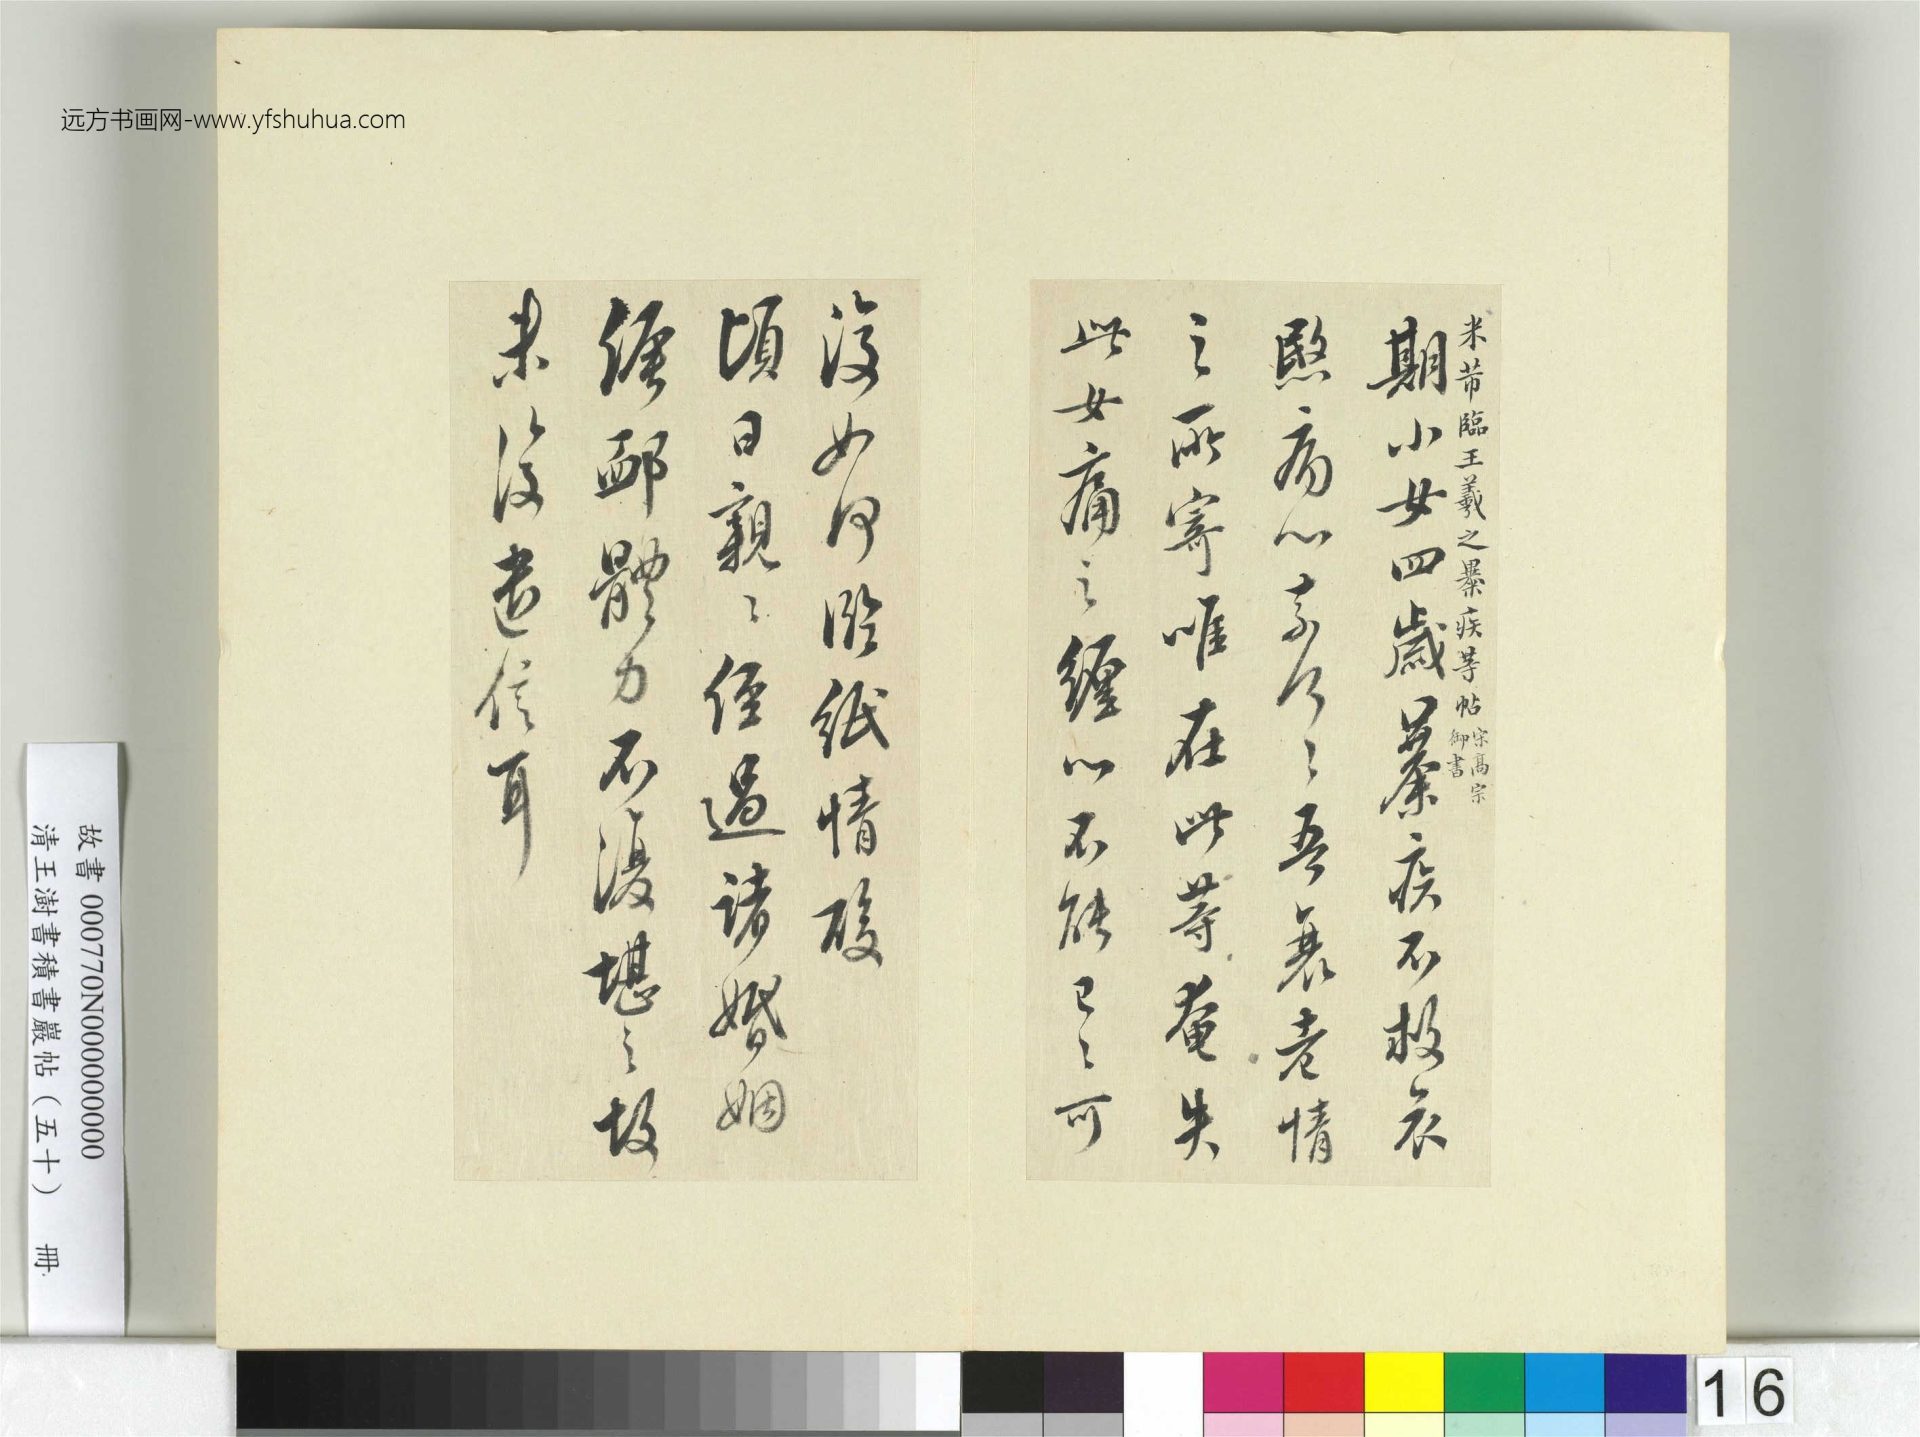 远方书画网-www.yfshuhua.com
米芾臨王羲之暴疾等帖宋高宗御書
期小女四歲暴疾不救哀
愍痛心奈何々吾衰老情
之所寄唯在此等奄失
此女痛之纏心不能已々可
復如何臨紙情酸
頃日親々經過諸婚姻
纏鄙體力不復堪之故
未復遣信耳
故書000770N000000000
清王澍書積書巖帖(五十) 冊
16